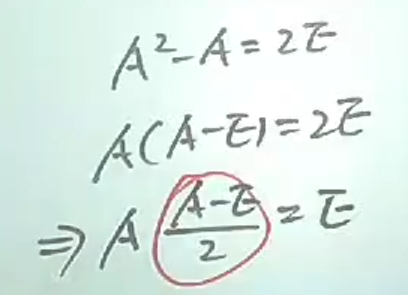 A²-A=2E
A(A-E)=2E
⇒ A (A-E)/2 = E